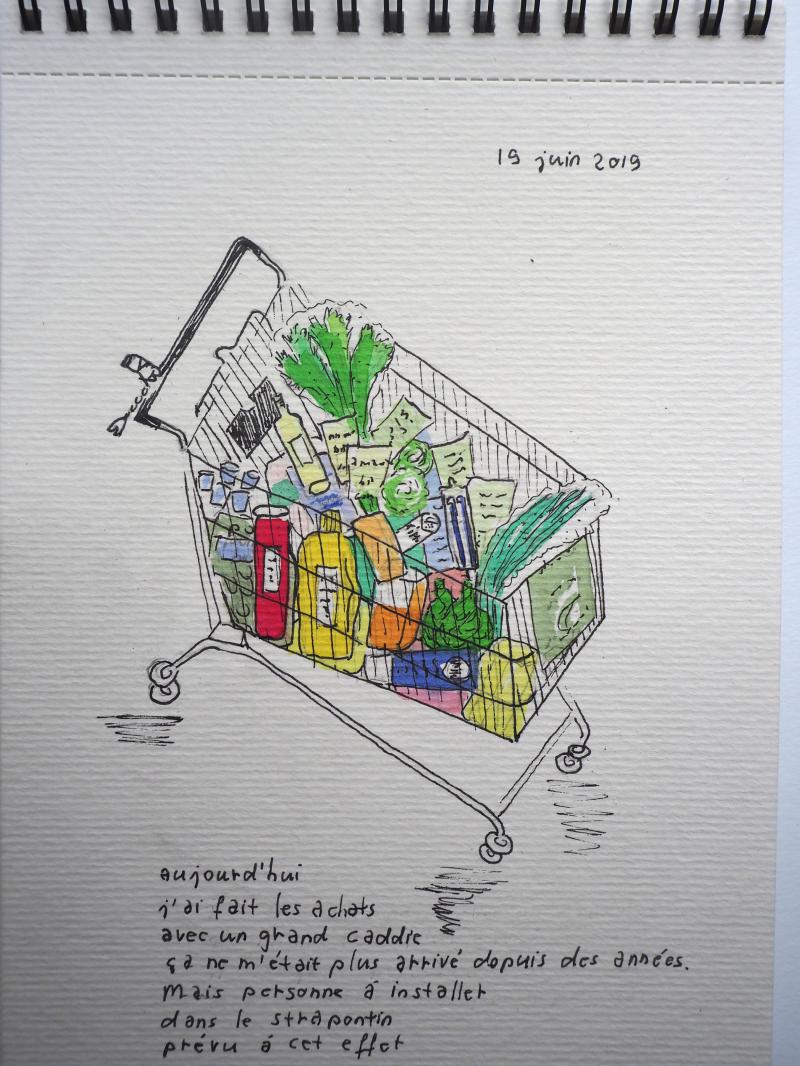 19 juin 2019
aujourd'hui
j'ai fait les achats
avec un grand caddie
ça ne m'était plus arrivé depuis des années.
Mais personne à installer
dans le strapontin
prévu à cet effet